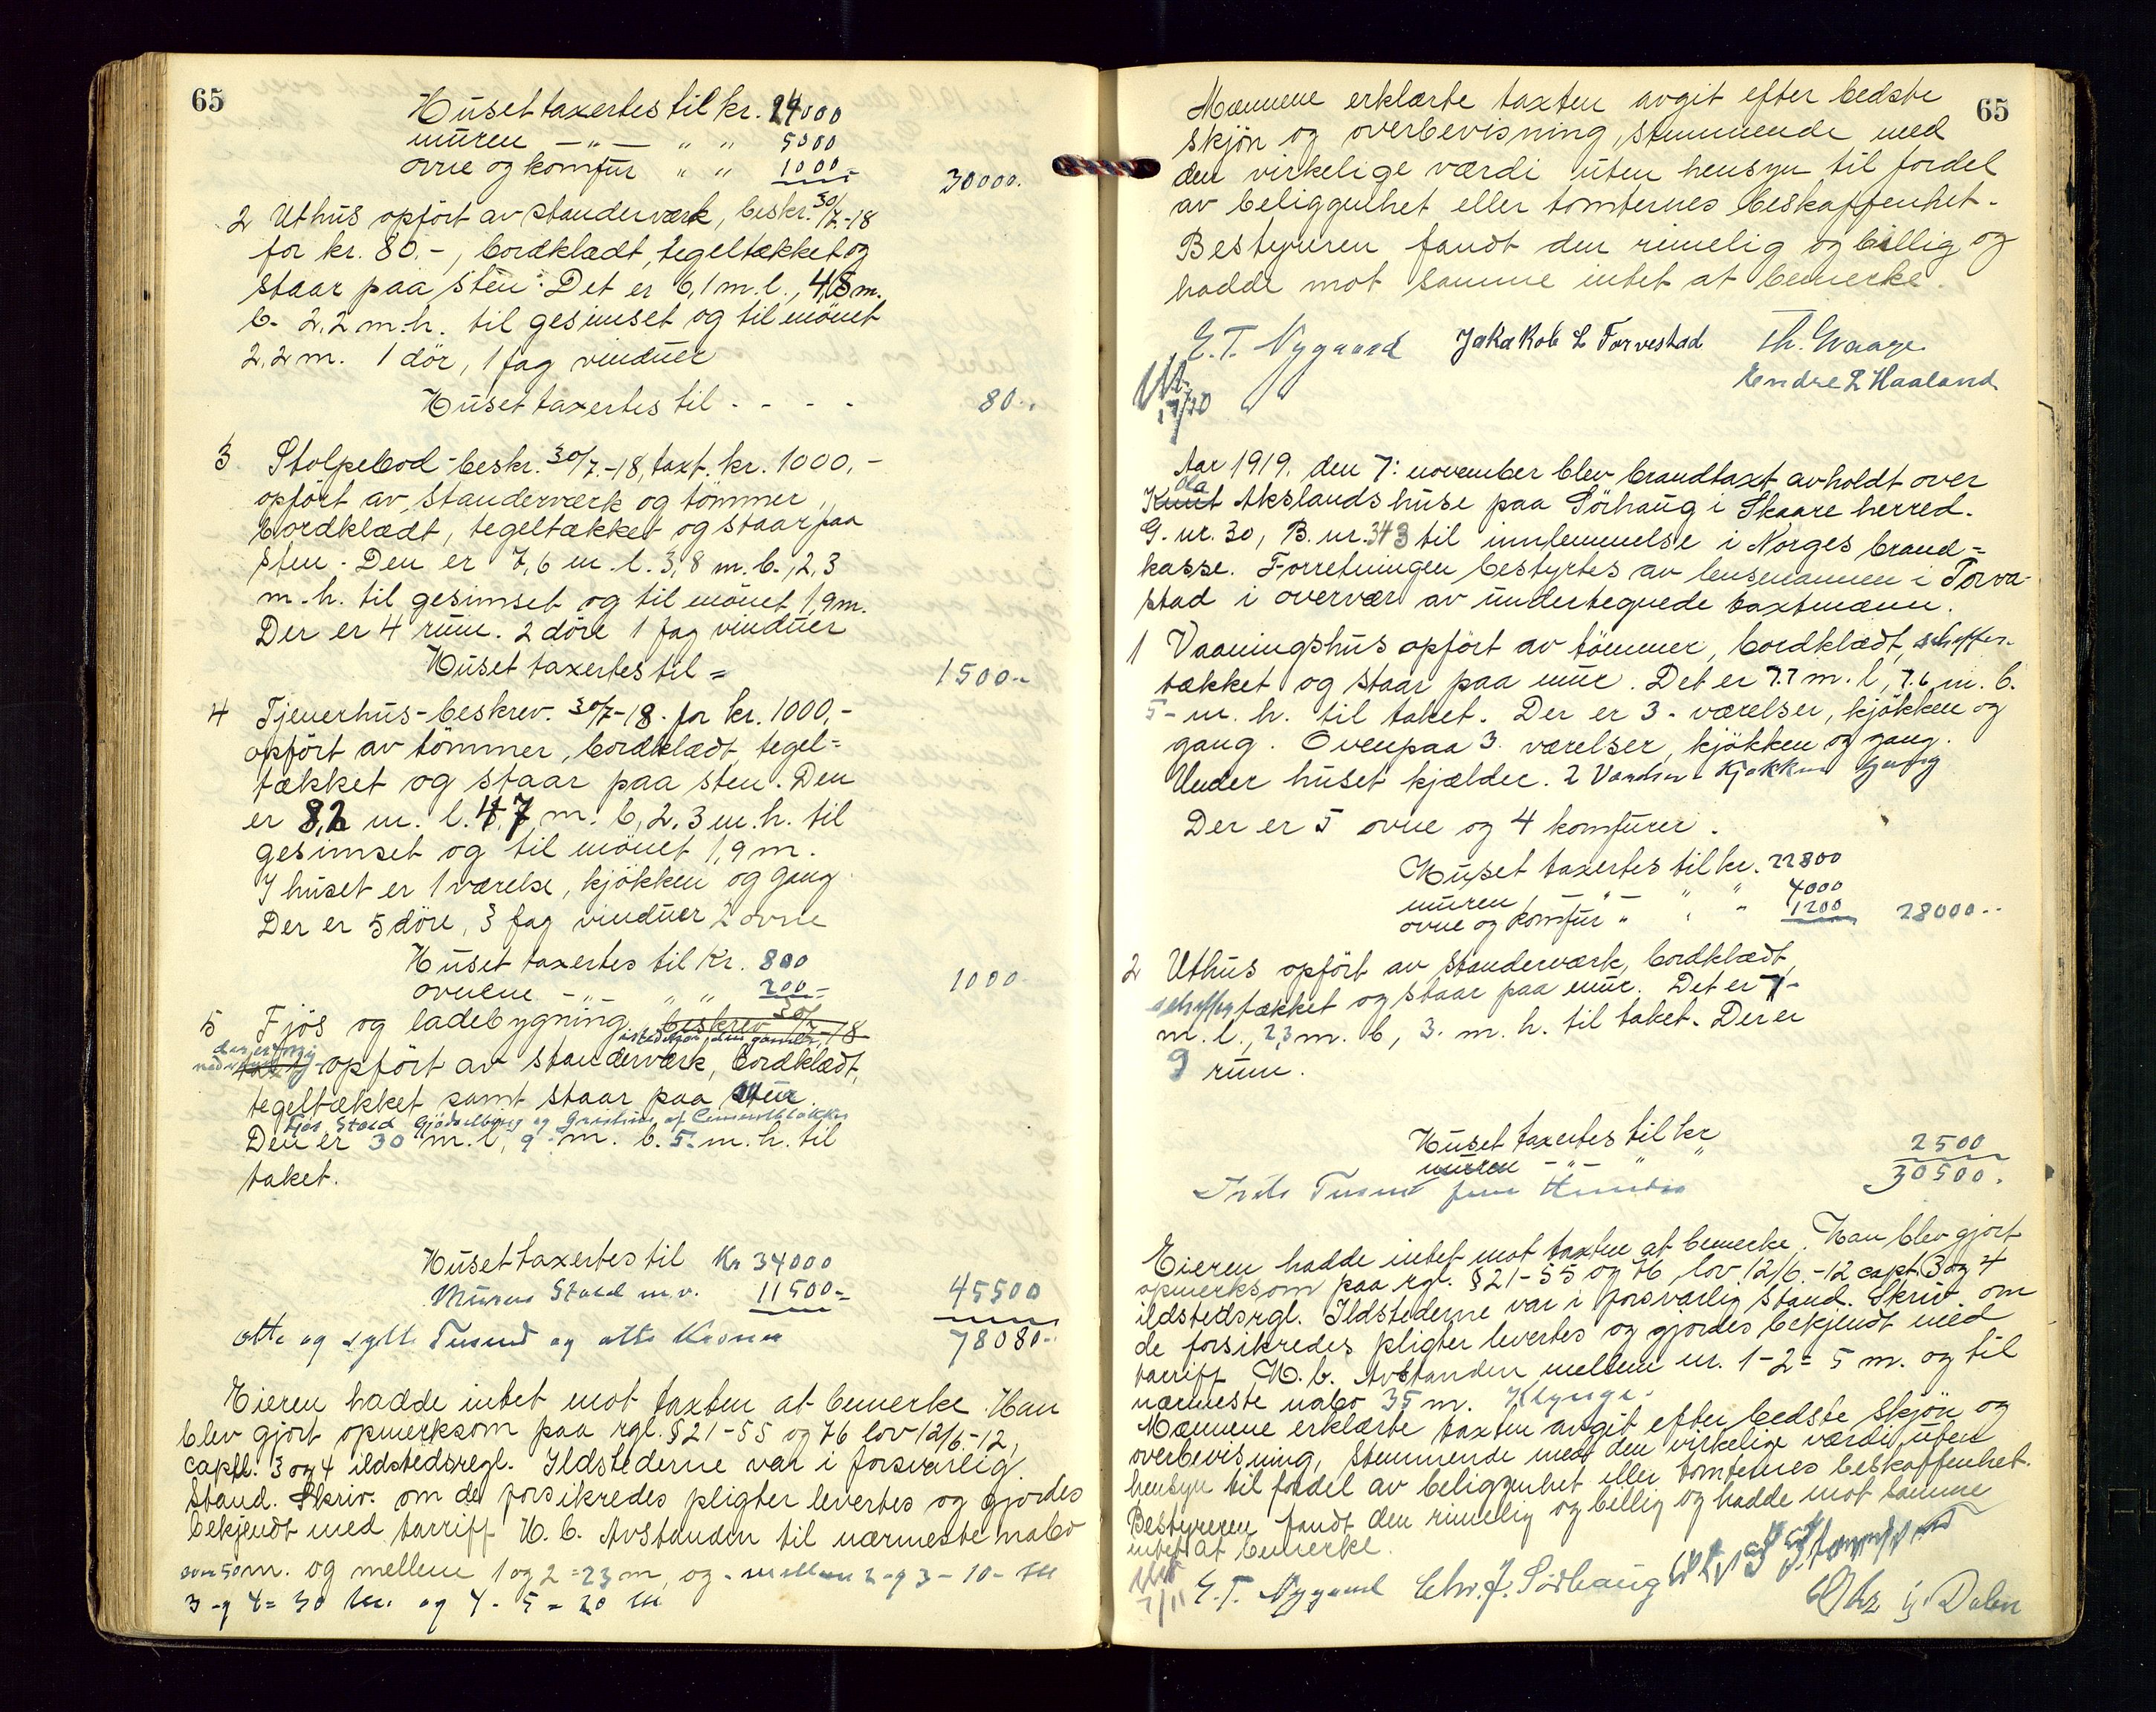 65
Huset taxertes til kr. 24000
muren — „ — „ „ 5000
ovne og komfur „ „ 1000 -
30000.
2 Uthus opført av standerværk, beskr. 30/7-18
for kr. 80.-, bordklædt, tegeltækket og
staar paa sten. Det er 6,1 m. l., 4,8 m.
b. 2,2 m. h. til gesimset og til mönet
2,2 m. 1 dör, 1 fag vinduer
Huset taxertes til - - - - 80..
3 Stolpebod - beskr. 30/7-18, taxt. kr. 1000,-
opført av standerværk og tömmer,
bordklædt, tegeltækket og staar paa
sten. Den er 7,6 m. l. 3,8 m. b., 2,3
m. h. til gesimset og til mönet 1,9 m.
Der er 4 rum. 2 döre 1 fag vinduer
Huset taxertes til = 1500..
4 Tjenerhus - beskrev. 30/7-18. for kr. 1000,-
opfört av tömmer, bordklædt, tegel=
tækket og staar paa sten. Den
er 8,2 m. l. 4,7 m. b, 2,3 m. h. til
gesimset og til mönet 1,9 m.
I huset er 1 værelse, kjökken og gang.
Der er 5 döre, 3 fag vinduer 2 ovne
Huset taxertes til Kr. 800
ovnene - „ - „ „ 200 = 1000.
5 Fjös og ladebygning. beskrev 30/7-18
istedetfor den gamle,
der er
opfört av standerværk, bordklædt,
tegeltækket samt staar paa mur.
Fjös, Stald Gjødselbing og Grisehus af Cementblokker
Den er 30 m. l, 9 m. b. 5. m. h. til
taket.
Huset taxertes til Kr 34000
Muren Stald m. v. 11500 = 45500
Otte og sytti Tusend og otti Kroner 78080..
Eieren hadde intet mot taxten at bemerke. Han
blev gjort opmerksom paa rgl. § 21-55 og 76 lov 12/6-12,
captl. 3 og 4 ildstedsregl. Ildstederne var i forsvarlig
stand. Skriv. om de forsikredes pligter levertes og gjordes
bekjendt med tarriff H. b. Avstanden til nærmeste nabo
over 50 m. og mellem 1 og 2 = 23 m, og mellem 2 og 3 - 10 - m
3 og 4 = 30 m. og 4 - 5 = 20 m
65
Mænnene erklærte taxten avgit efter bedste
skjön og overbevisning, stemmende med
den virkelige værdi uten hensyn til fordel
av beliggenhet eller tomternes beskaffenhet.
Bestyreren fandt den rimelig og billig og
hadde mot samme intet at bemerke.
E. T. Nygaard Jakakob L Torvestad Th. Waage
Endre L Haaland
Aar 1919, den 7: november blev brandtaxt avholdt over
Ola
Knut Akslands huse paa Sörhaug i Skaare herred.
G. nr. 30, B. nr. 343 til innlemmelse i Norges brand=
kasse. Forretningen bestyrtes av lensmannen i Torva-
stad i overvær av undertegnede taxtmænn.
1 Vaaningshus opfört av tömmer, bordklædt, skiffer-
tækket og staar paa mur. Det er 7.7 m. l, 7.6 m. b.
5 - m. h. til taket. Der er 3 - værelser, kjökken og
gang. Ovenpaa 3 værelser, kjökken og gang.
Under huset kjælder. 2 Værelser Kjøkken Gang
Der er 5 ovne og 4 komfurer.
Huset taxertes til kr. 22800
muren, - „ - „ „ 4000
ovne og komfur „ „ „ 1200 28000..
2 Uthus opfört av standerværk, bordklædt,
skiffertækket og staar paa mur. Det er 7 -
m. l., 2,3 m. b, 3. m. h. til taket. Der er
9 rum.
Huset taxertes til kr 2500
muren - „ - „ „
30500.
Treti Tusend fem Hundre
Eieren hadde intet mot taxten at bemerke. Han blev gjort
opmerksom paa rgl. § 21-55 og 76, lov 12/6-12 capt. 3 og 4
ildstedsrgl. Ildstederne var i forsvarlig stand. Skriv. om
de forsikredes pligter levertes og gjordes bekjendt med
tarriff H. b. Avstanden mellem nr. 1-2 = 5 m. og til
nærmeste nabo 35 m. Klynge.
Mænnene erklærte taxten avgit efter bedste skjön og
overbevisning, stemmende med den virkelige værdi uten
hensyn til fordel av beliggenhet eller tomternes beskaffenhet.
Bestyreren fandt den rimelig og billig og hadde mot samme
intet at bemerke.
E. T. Nygaard Chr. J. Sörhaug